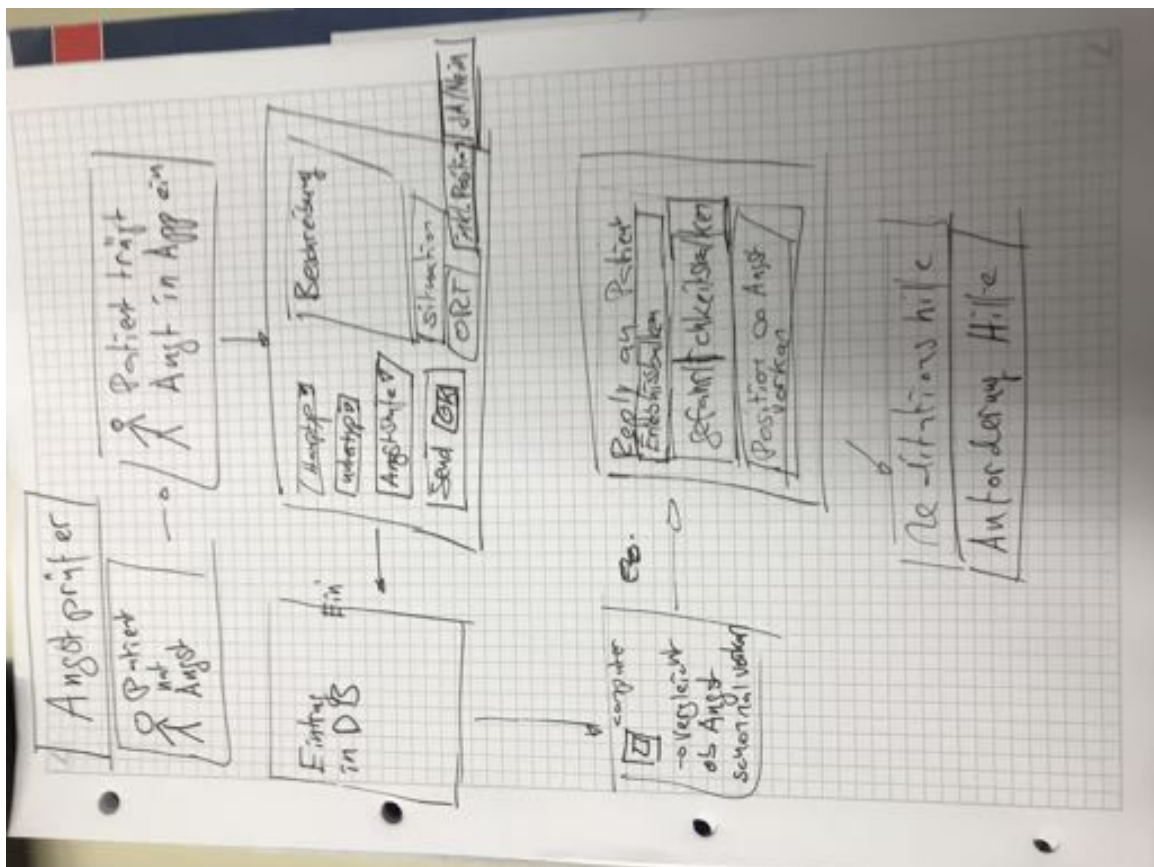 Angstprüfer
Patiet
hat
Angst
Patiet trägt
Angst in App ein
Haupttyp
Untertyp
Angststufe
Send OK
Beschreibung
Situation
ORT
Position
JA/Nein
Eintrag
in DB
Computer
vergleicht
ob Angst
schonmal vorkam
Reply an Patiet
Position wo Angst
vorkam
Meditationshilfe
Anforderung Hilfe